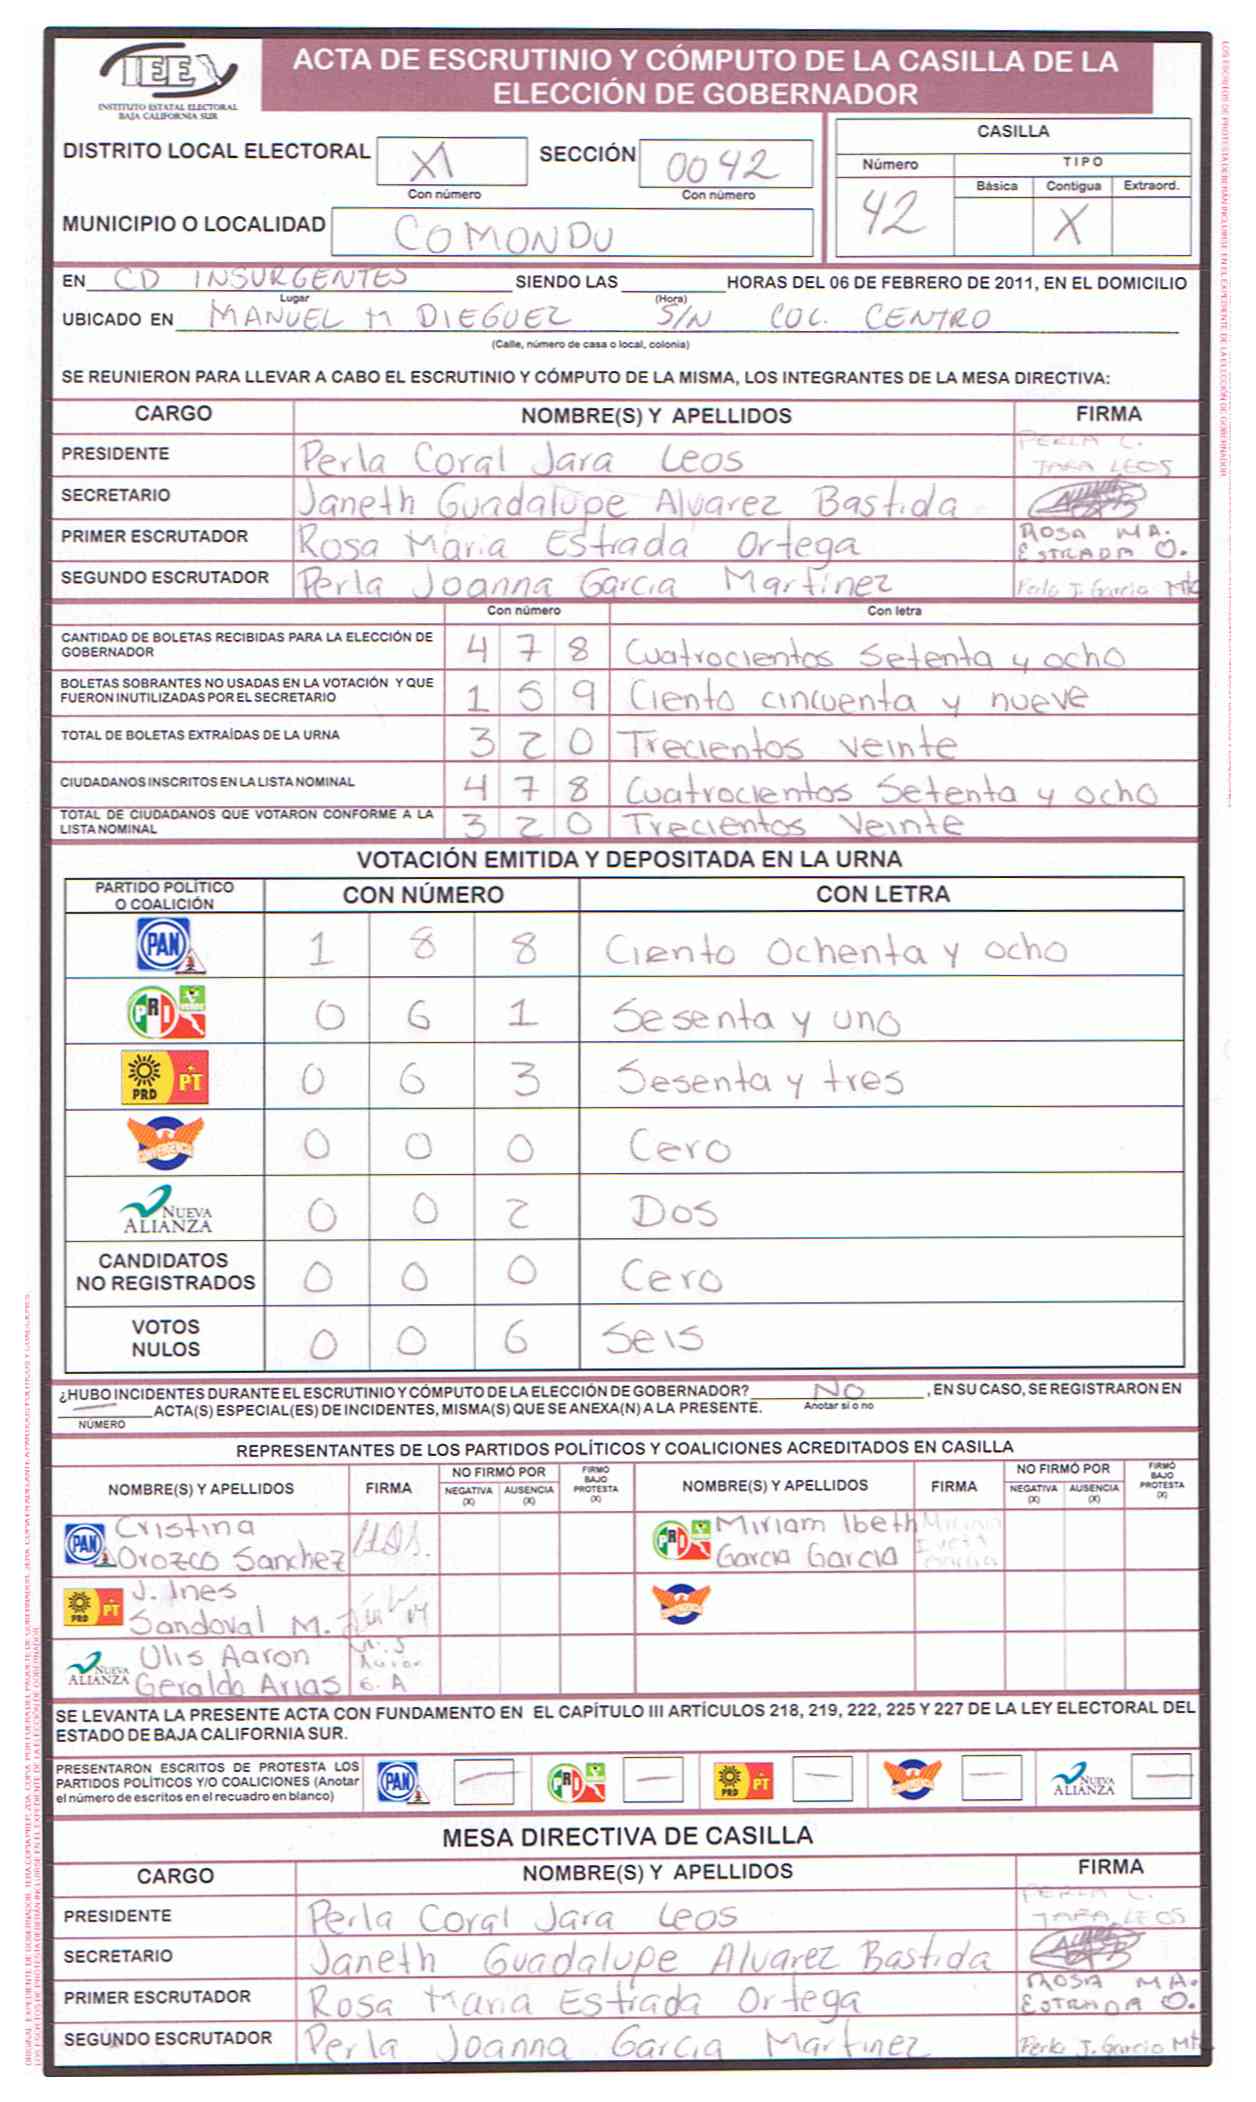 IEE
INSTITUTO ESTATAL ELECTORAL
BAJA CALIFORNIA SUR
ACTA DE ESCRUTINIO Y CÓMPUTO DE LA CASILLA DE LA
ELECCIÓN DE GOBERNADOR
DISTRITO LOCAL ELECTORAL XI SECCIÓN 0042
Con número Con número
MUNICIPIO O LOCALIDAD COMONDU
CASILLA
Número TIPO
Básica Contigua Extraord.
42 X
EN CD INSURGENTES SIENDO LAS HORAS DEL 06 DE FEBRERO DE 2011, EN EL DOMICILIO
Lugar (Hora)
UBICADO EN MANUEL M DIEGUEZ S/N COL. CENTRO
(Calle, número de casa o local, colonia)
SE REUNIERON PARA LLEVAR A CABO EL ESCRUTINIO Y CÓMPUTO DE LA MISMA, LOS INTEGRANTES DE LA MESA DIRECTIVA:
CARGO NOMBRE(S) Y APELLIDOS FIRMA
PRESIDENTE Perla Coral Jara Leos PERLA C. JARA LEOS
SECRETARIO Janeth Guadalupe Alvarez Bastida
PRIMER ESCRUTADOR Rosa Maria Estrada Ortega ROSA MA. ESTRADA O.
SEGUNDO ESCRUTADOR Perla Joanna Garcia Martinez Perla J. Garcia Mtz
Con número Con letra
CANTIDAD DE BOLETAS RECIBIDAS PARA LA ELECCIÓN DE
GOBERNADOR 4 7 8 Cuatrocientos Setenta y ocho
BOLETAS SOBRANTES NO USADAS EN LA VOTACIÓN Y QUE
FUERON INUTILIZADAS POR EL SECRETARIO 1 5 9 Ciento cincuenta y nueve
TOTAL DE BOLETAS EXTRAÍDAS DE LA URNA 3 2 0 Trecientos veinte
CIUDADANOS INSCRITOS EN LA LISTA NOMINAL 4 7 8 Cuatrocientos Setenta y ocho
TOTAL DE CIUDADANOS QUE VOTARON CONFORME A LA
LISTA NOMINAL 3 2 0 Trecientos Veinte
VOTACIÓN EMITIDA Y DEPOSITADA EN LA URNA
PARTIDO POLÍTICO
O COALICIÓN CON NÚMERO CON LETRA
PAN 1 8 8 Ciento Ochenta y ocho
PRI VERDE 0 6 1 Sesenta y uno
PRD PT 0 6 3 Sesenta y tres
CONVERGENCIA 0 0 0 Cero
NUEVA
ALIANZA 0 0 2 Dos
CANDIDATOS
NO REGISTRADOS 0 0 0 Cero
VOTOS
NULOS 0 0 6 Seis
¿HUBO INCIDENTES DURANTE EL ESCRUTINIO Y CÓMPUTO DE LA ELECCIÓN DE GOBERNADOR? NO , EN SU CASO, SE REGISTRARON EN
— ACTA(S) ESPECIAL(ES) DE INCIDENTES, MISMA(S) QUE SE ANEXA(N) A LA PRESENTE. Anotar sí o no
NÚMERO
REPRESENTANTES DE LOS PARTIDOS POLÍTICOS Y COALICIONES ACREDITADOS EN CASILLA
NOMBRE(S) Y APELLIDOS FIRMA NO FIRMÓ POR NEGATIVA (X) AUSENCIA (X) FIRMÓ BAJO PROTESTA (X) NOMBRE(S) Y APELLIDOS FIRMA NO FIRMÓ POR NEGATIVA (X) AUSENCIA (X) FIRMÓ BAJO PROTESTA (X)
PAN Cristina Orozco Sanchez
PRI Miriam Ibeth Garcia Garcia
PRD PT J. Ines Sandoval M.
NUEVA ALIANZA Ulis Aaron Geraldo Arias
SE LEVANTA LA PRESENTE ACTA CON FUNDAMENTO EN EL CAPÍTULO III ARTÍCULOS 218, 219, 222, 225 Y 227 DE LA LEY ELECTORAL DEL
ESTADO DE BAJA CALIFORNIA SUR.
PRESENTARON ESCRITOS DE PROTESTA LOS
PARTIDOS POLÍTICOS Y/O COALICIONES (Anotar
el número de escritos en el recuadro en blanco) PAN — PRI — PRD PT — — NUEVA ALIANZA —
MESA DIRECTIVA DE CASILLA
CARGO NOMBRE(S) Y APELLIDOS FIRMA
PRESIDENTE Perla Coral Jara Leos PERLA C. JARA LEOS
SECRETARIO Janeth Guadalupe Alvarez Bastida
PRIMER ESCRUTADOR Rosa Maria Estrada Ortega ROSA MA. ESTRADA O.
SEGUNDO ESCRUTADOR Perla Joanna Garcia Martinez Perla J. Garcia Mtz